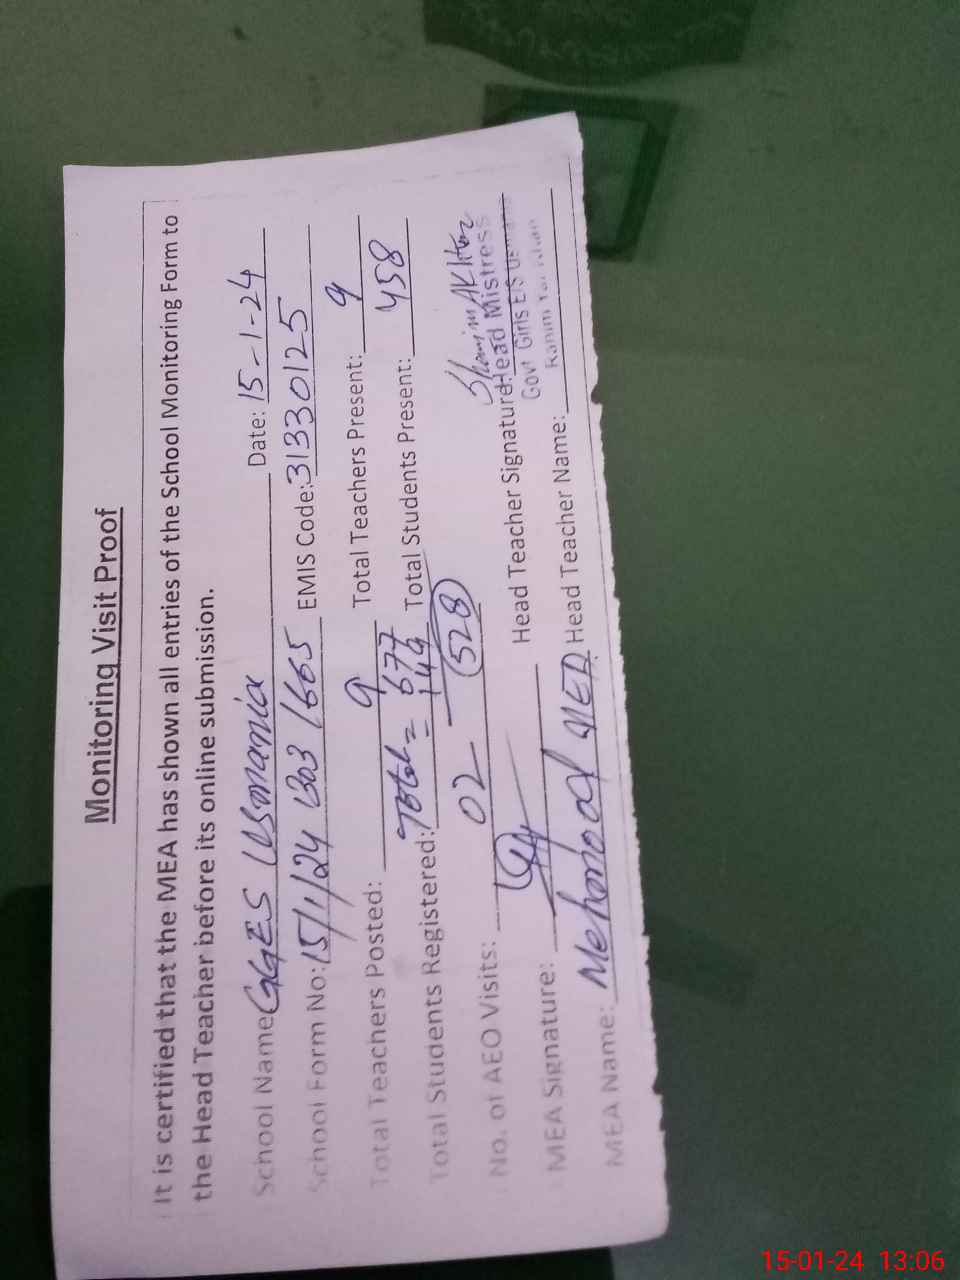 Monitoring Visit Proof
It is certified that the MEA has shown all entries of the School Monitoring Form to
the Head Teacher before its online submission.
School Name: GGES Usmania Date: 15-1-24
School Form No: 15/1/24 1303 1665 EMIS Code: 31330125
Total Teachers Posted: 9 Total Teachers Present: 9
Total Students Registered: Total = 677 Total Students Present: 458
149
528
No. of AEO Visits: 02
Shamim Akhtar
MEA Signature: Head Teacher Signature: Head Mistress
Govt Girls E/S Usmania
Rahim Yar Khan
MEA Name: Mehmood Head Teacher Name:
15-01-24 13:06